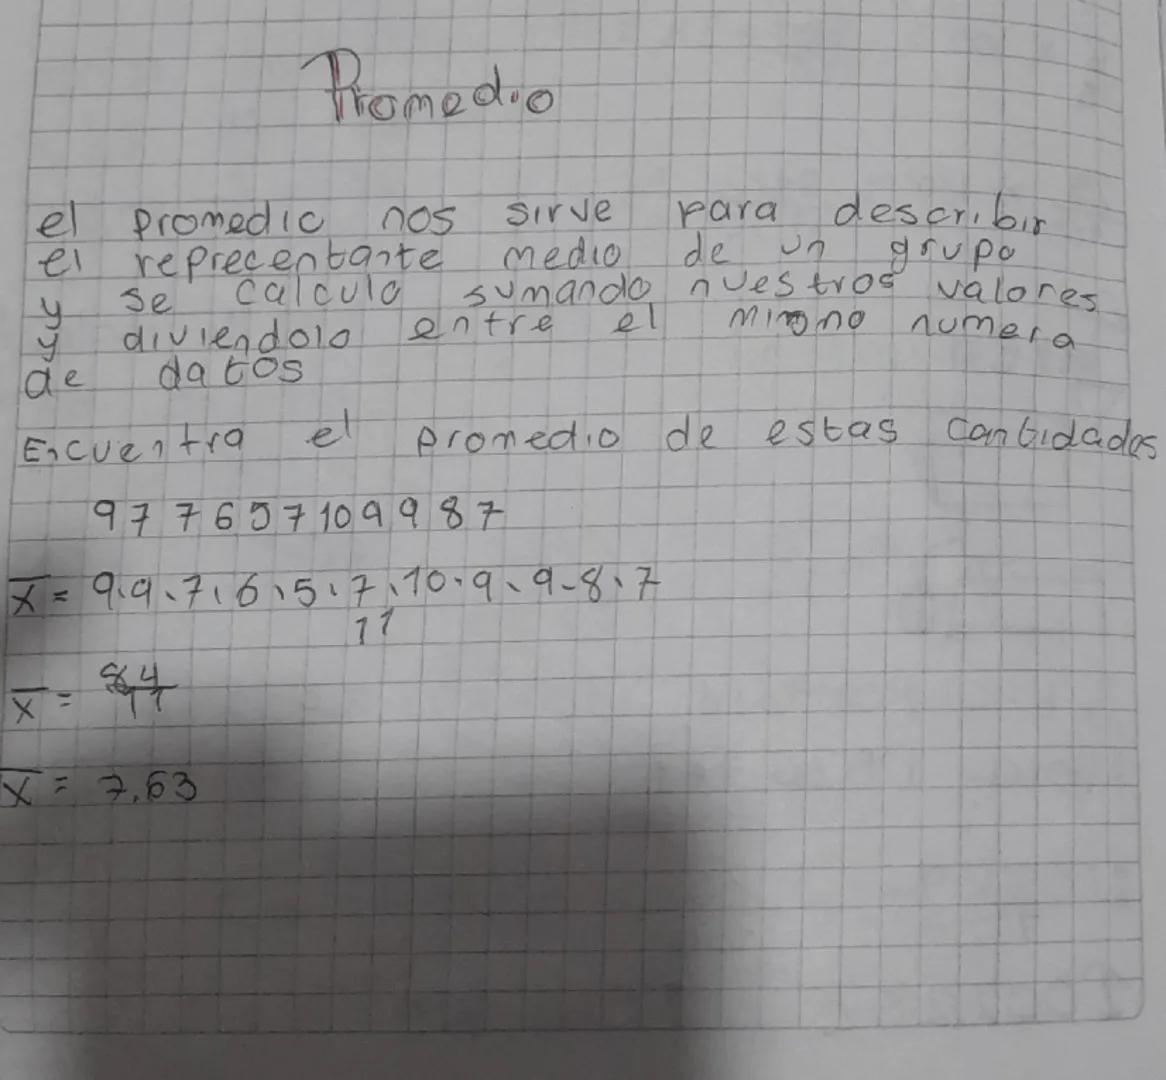 Promedio
el promedio nos sirve para describir
el reprecentante medio de un grupo
y se calcula sumando nuestros valores
y diviendolo entre el mismo numero
de datos
Encuentra el promedio de estas cantidades
9 7 7 6 5 7 10 9 9 8 7
x̄ = 9, 9, 7, 6, 5, 7, 10, 9, 9, 8, 7
11
x̄ = 84/11
x̄ = 7.63